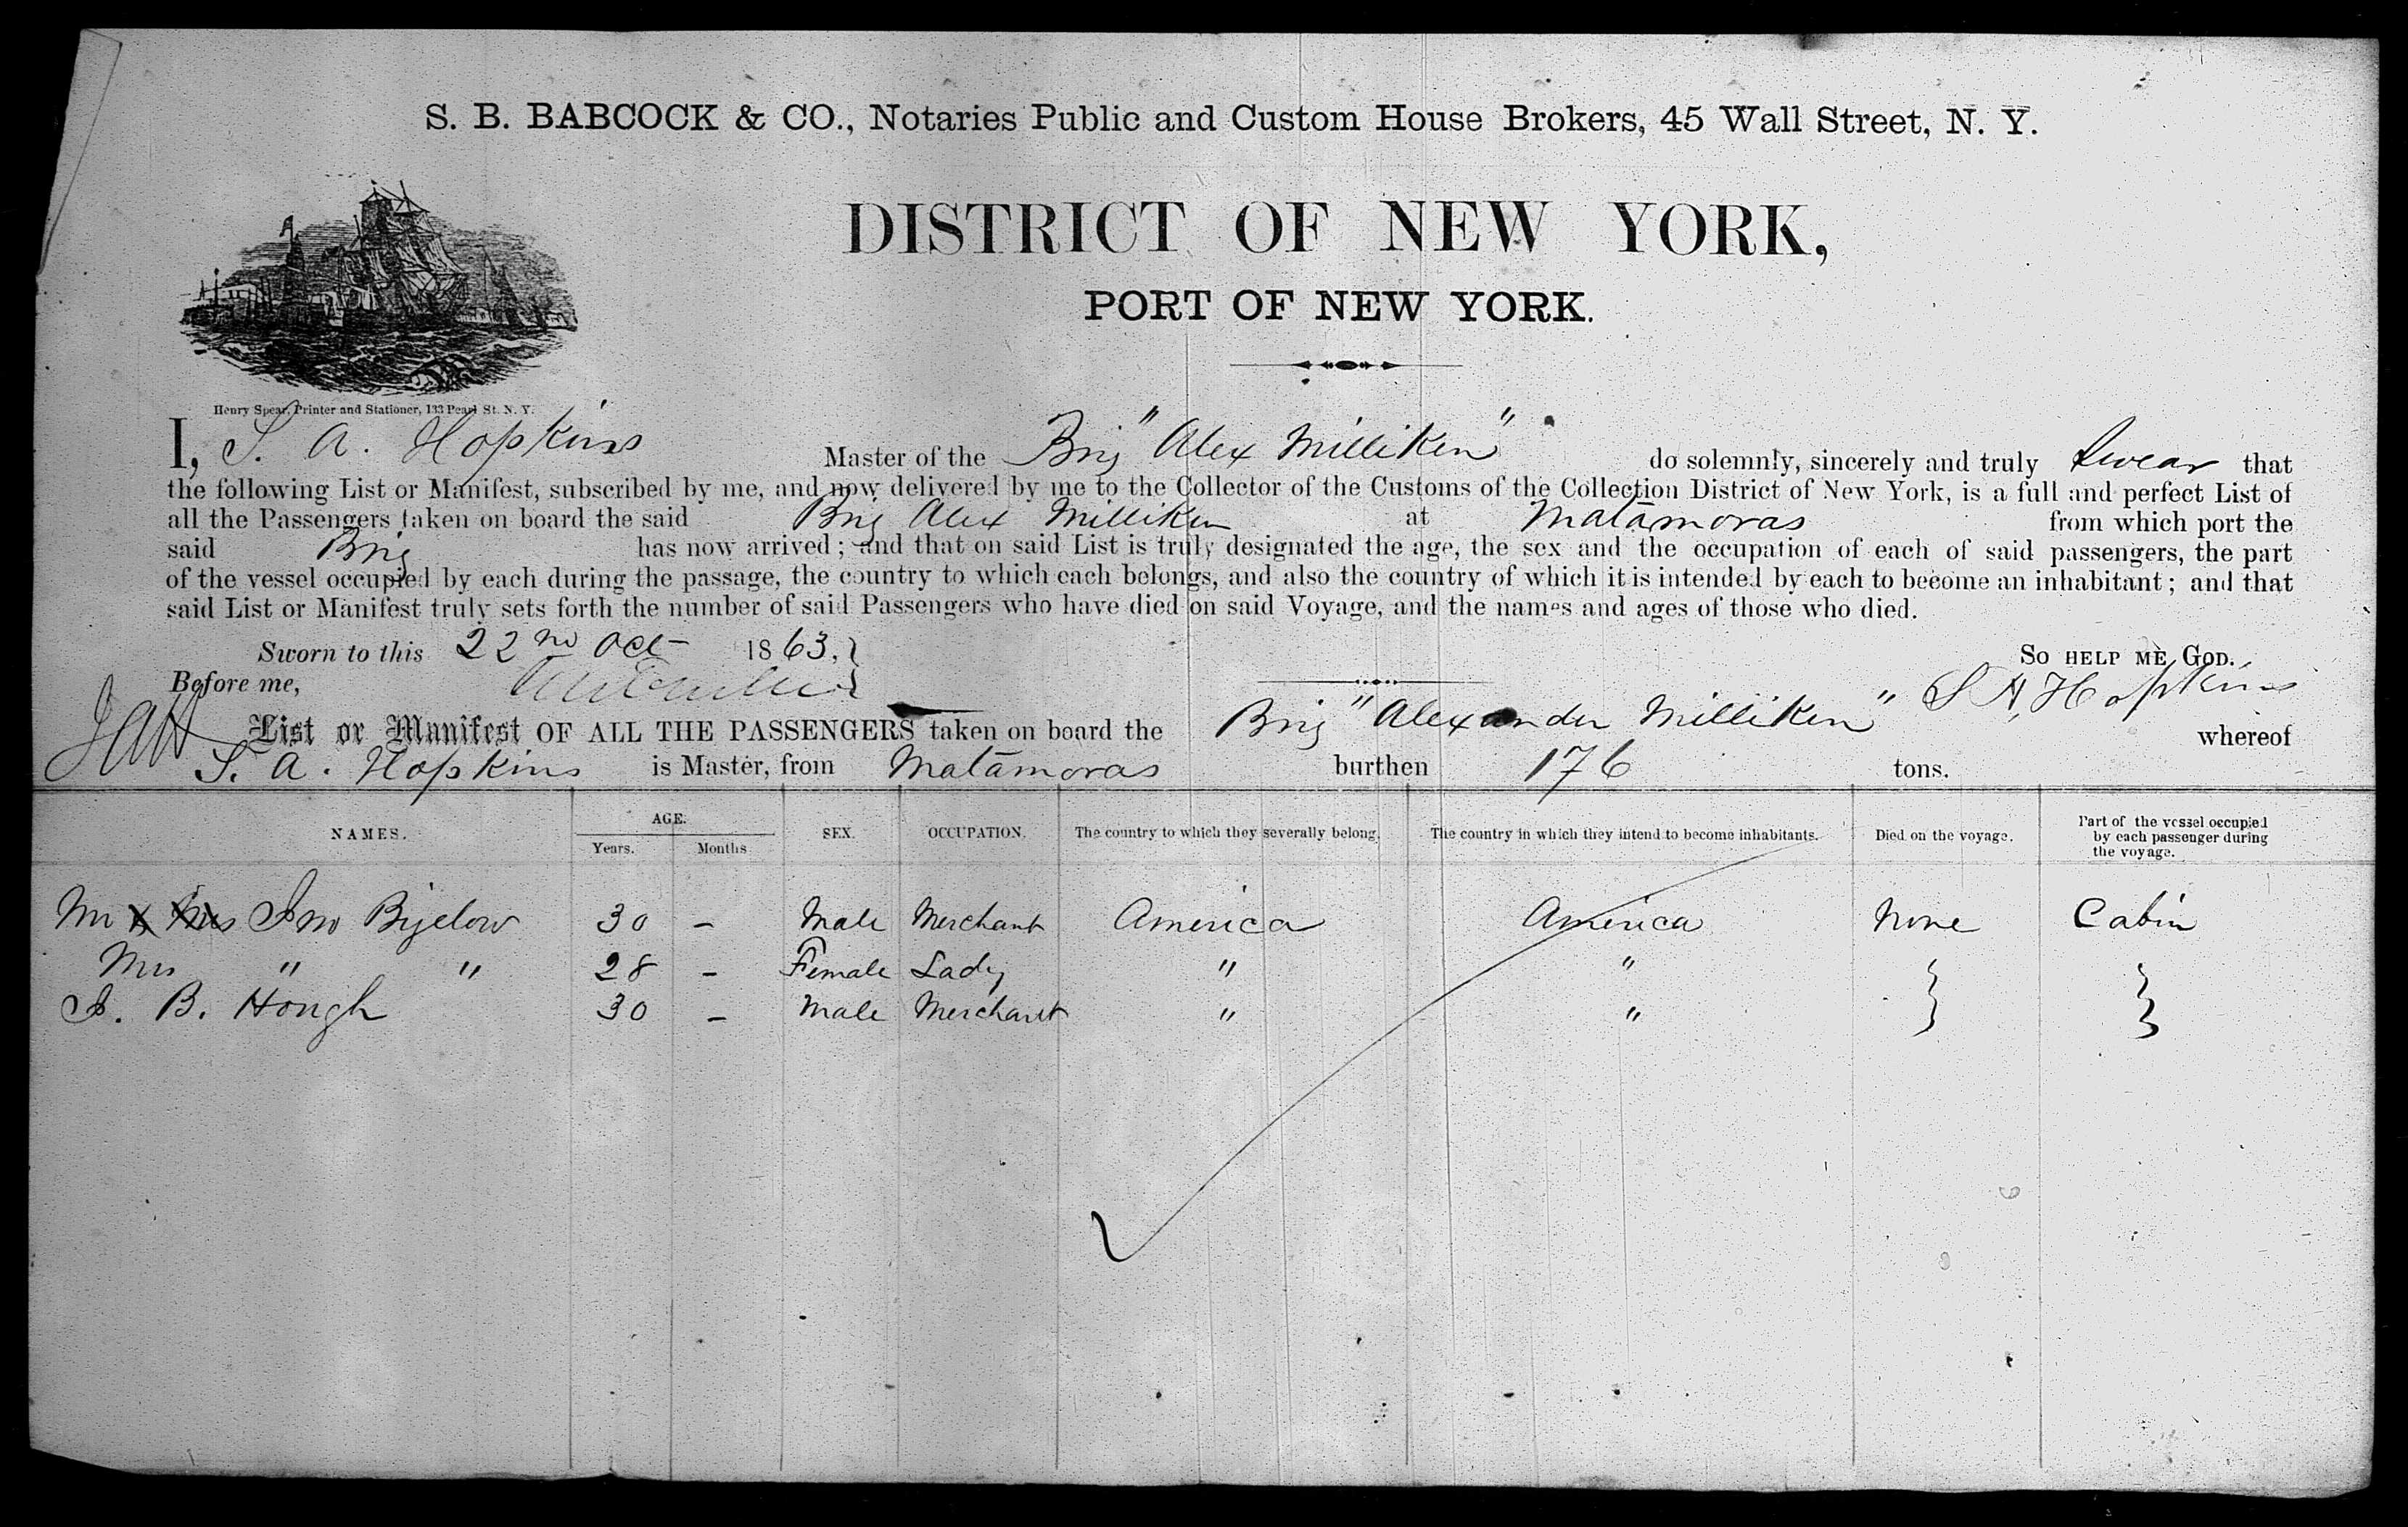 S. B. BABCOCK & CO., Notaries Public and Custom House Brokers, 45 Wall Street, N. Y.
DISTRICT OF NEW YORK,
PORT OF NEW YORK.
Henry Spear, Printer and Stationer, 133 Pearl St. N. Y.
I, S. A. Hopkins Master of the Brig "Alex Milliken" do solemnly, sincerely and truly swear that
the following List or Manifest, subscribed by me, and now delivered by me to the Collector of the Customs of the Collection District of New York, is a full and perfect List of
all the Passengers taken on board the said Brig Alex Milliken at Matamoras from which port the
said Brig has now arrived; and that on said List is truly designated the age, the sex and the occupation of each of said passengers, the part
of the vessel occupied by each during the passage, the country to which each belongs, and also the country of which it is intended by each to become an inhabitant; and that
said List or Manifest truly sets forth the number of said Passengers who have died on said Voyage, and the names and ages of those who died.
Sworn to this 22nd Oct 1863. So HELP ME GOD.
Before me, S A Hopkins
List or Manifest OF ALL THE PASSENGERS taken on board the Brig "Alexander Milliken" whereof
S. A. Hopkins is Master, from Matamoras burthen 176 tons.
NAMES. AGE. Years. Months SEX. OCCUPATION. The country to which they severally belong. The country in which they intend to become inhabitants. Died on the voyage. Part of the vessel occupied by each passenger during the voyage.
Mr & Mrs Jno Bigelow 30 - Male Merchant America America None Cabin
Mrs " " 28 - Female Lady " "
J. B. Hough 30 - Male Merchant " "